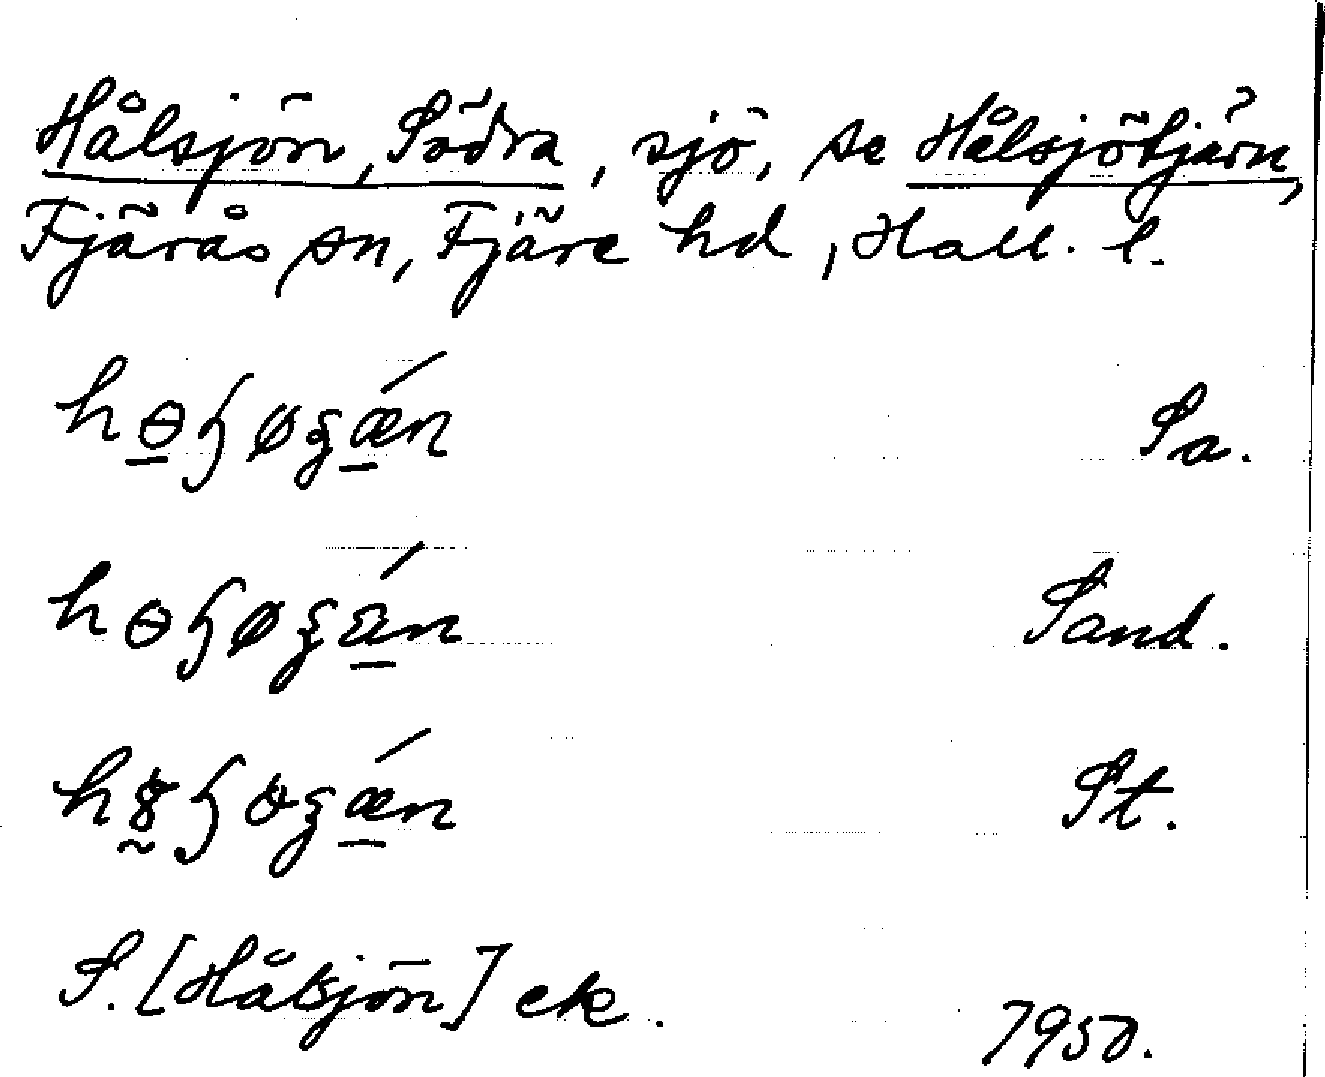 Hålsjön, Södra, sjö, se Hålsjötjärn,
Fjärås sn, Fjäre hd, Hall. l.
Sa.
Sand.
St.
S. [Hålsjön] ek. 1950.